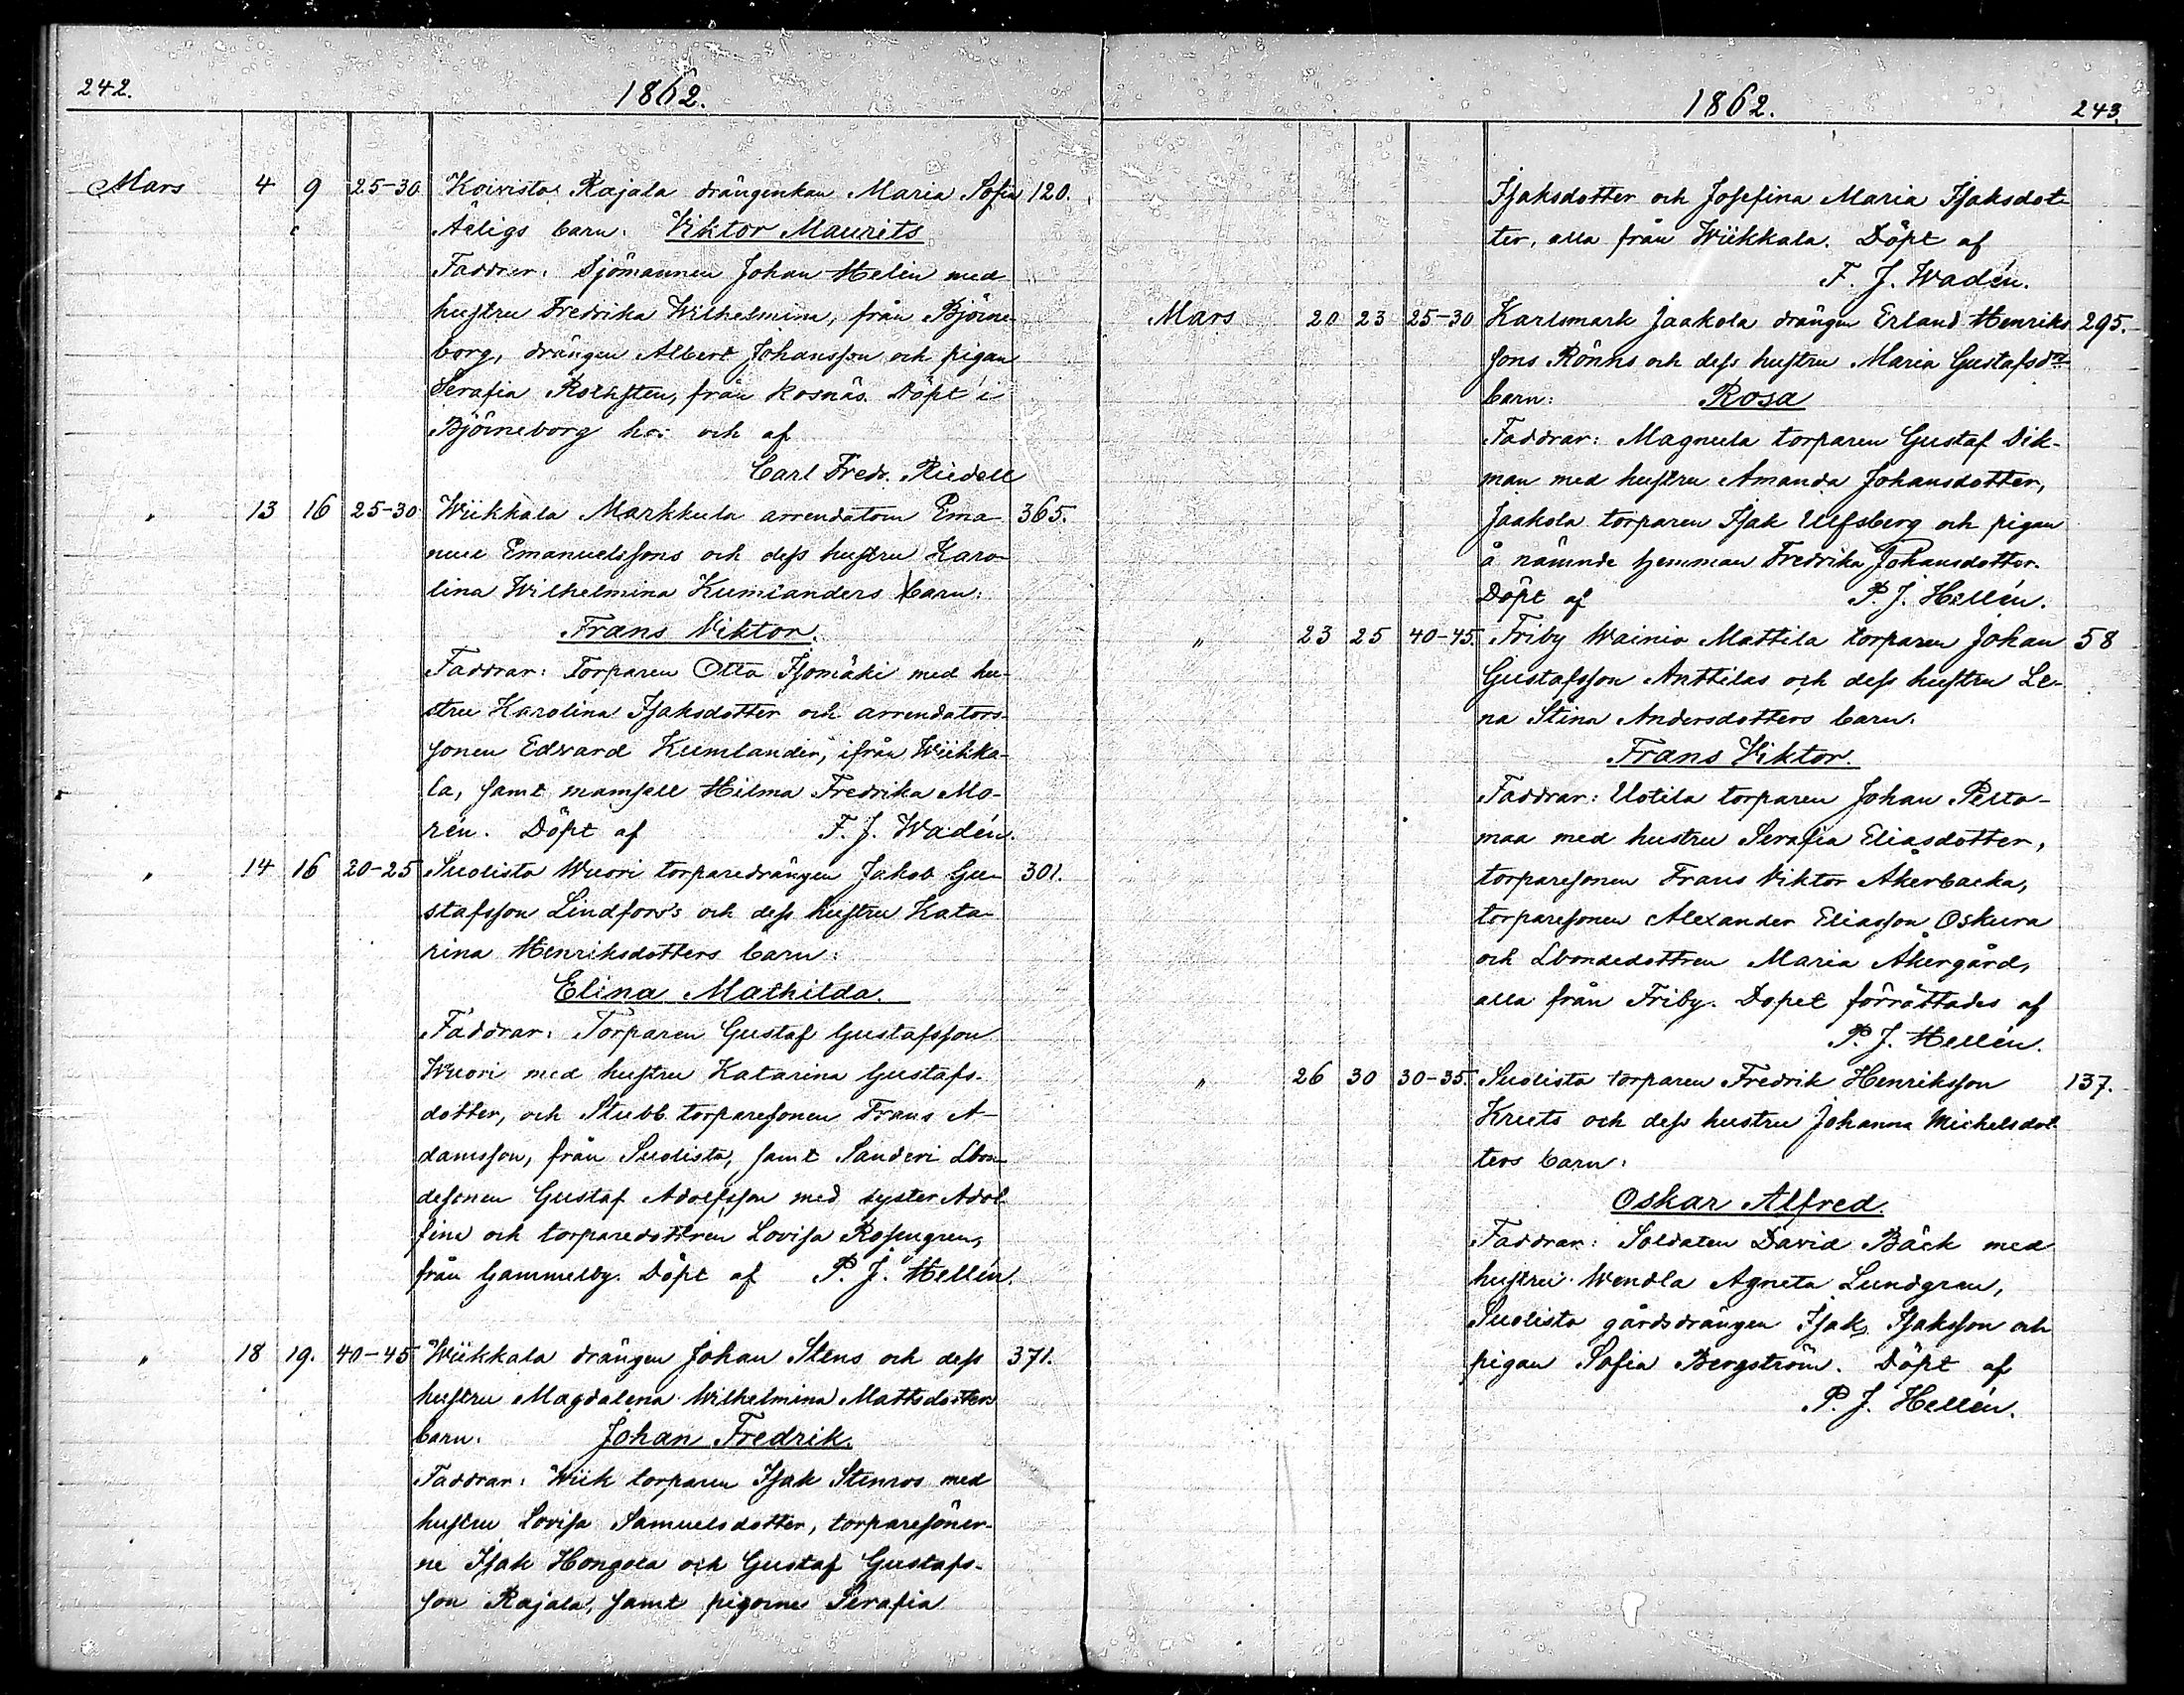 242.
1862.
Mars 4 9 25-30 Koivisto Rajala drängenkan Maria Sofia 120.
Äeligs barn. Viktor Maurits
Faddrar: Sjömannen Johan Helin med
hustru Fredrika Wilhelmina, från Björne-
borg, drängen Albert Johansson och pigan
Serafia Rothsten, från Kosnäs. Döpt i
Björneborg hos och af
Carl Fredr. Riedell
" 13 16 25-30 Wiikkala Markkula arrendatorn Ema- 365.
nuel Emanuelssons och dess hustru Karo-
lina Wilhelmina Kumlanders barn:
Frans Viktor.
Faddrar: Torparen Otto Isomäki med hu-
stru Karolina Isaksdotter och arrendators-
sonen Edvard Kumlander, ifrån Wiikka-
la, samt mamsell Hilma Fredrika Mo-
rén. Döpt af F. J. Wadén.
" 14 16 20-25 Suolisto Wuori torparedrängen Jakob Gu- 301.
stafsson Lindfors's och dess hustru Kata-
rina Henriksdotters barn:
Elina Mathilda.
Faddrar: Torparen Gustaf Gustafsson
Wuori med hustru Katarina Gustafs-
dotter, och Stubb torparesonen Frans A-
damsson, från Suolisto, samt Sanderi Lbon-
desonen Gustaf Adolfsson med syster Adol
fina och torparedottren Lovisa Rosengren,
från Gammelby. Döpt af P. J. Hellén.
" 18 19. 40-45 Wiikkala drängen Johan Stens och dess 371.
hustru Magdalena Wilhelmina Mattsdotters
barn. Johan Fredrik.
Faddrar: Wiik torparen Isak Stenros med
hustru Lovisa Samuelsdotter, torparesöner-
ne Isak Hongola och Gustaf Gustafs-
son Rajala, samt pigorne Serafia
1862.
243.
Isaksdotter och Josefina Maria Isaksdot-
ter, alla från Wiikkala. Döpt af
F. J. Wadén.
Mars 20 23 25-30 Karlsmark Jaakola drängen Erland Henriks 295.
sons Rönns och dess hustru Maria Gustafsdrs
barn: Rosa
Faddrar: Magnula torparen Gustaf Dik-
man med hustru Amanda Johansdotter,
Jaakola torparen Isak Ulfsberg och pigan
å nämnde hemman Fredrika Johansdotter.
Döpt af P. J. Hellén.
" 23 25 40-45. Friby Wainio Mattila torparen Johan 58
Gustafsson Anttilas och dess hustru Le-
na Stina Andersdotters barn.
Frans Viktor.
Faddrar: Uotila torparen Johan Pelto-
maa med hustru Serafia Eliasdotter,
torparesonen Frans Viktor Åkerbacka,
torparesonen Alexander Eliasson Oskura
och Lbondedottren Maria Åkergård,
alla från Friby. Dopet förrättades af
P. J. Hellén.
" 26 30 30-35. Suolisto torparen Fredrik Henriksson 137.
Kruts och dess hustru Johanna Michelsdot
ters barn:
Oskar Alfred.
Faddrar: Soldaten David Bäck med
hustru Wendla Agneta Lundgren,
Suolisto gårdsdrängen Isak Isaksson och
pigan Sofia Bergström. Döpt af
P. J. Hellén.